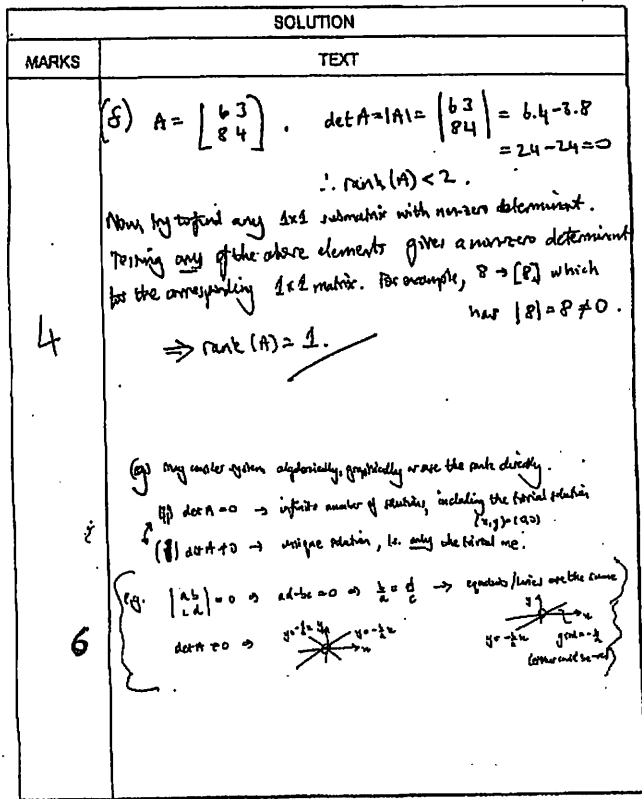 SOLUTION
MARKS TEXT
(f) A = [6 3 8 4] . det A = |A| = |6 3 8 4| = 6.4-3.8
= 24-24=0
∴ rank (A) < 2.
Now try to find any 1x1 submatrix with non-zero determinant.
Testing any of the above elements gives a non-zero determinant
for the corresponding 1x1 matrix. For example, 8 → [8] which
has |8| = 8 ≠ 0.
4
⇒ rank (A) = 1.
(g) May consider system algebraically, graphically or use the rank directly.
det A = 0 → infinite number of solutions, including the trivial solution
(x,y)=(0,0)
det A ≠ 0 → unique solution, i.e. only the trivial one.
e.g. |a b c d| = 0 ⇒ ad-bc = 0 ⇒ → equations/lines are the same
6
det A ≠ 0 ⇒